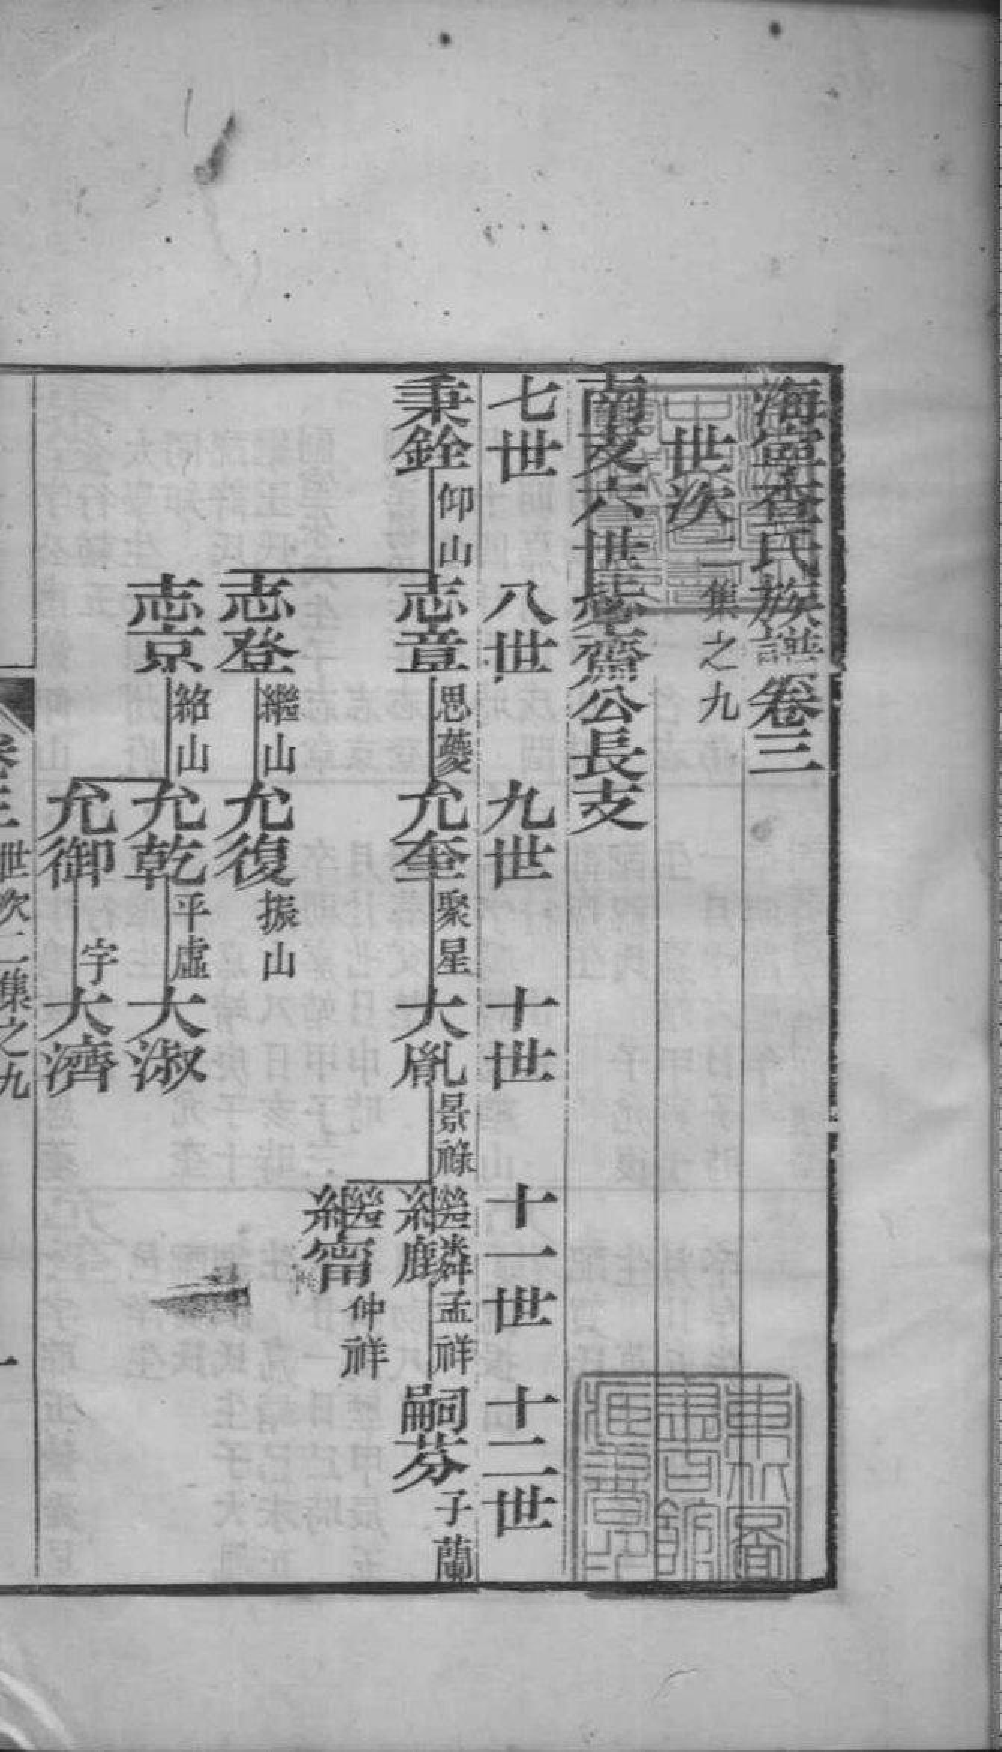 海寧查氏族譜卷三
世次二集之九
南支六世 齋公長支
七世 八世 九世 十世 十一世 十二世
秉銓 仰山 志章 思 允奎 聚星 大胤 景祿 繼麟 孟祥 嗣芬 子蘭
繼甯 仲祥
志登 繼山 允復 振山
志京 紹山 允乾 平虛 大淑
允御 字 大濟
卷三 世次二集之九 一